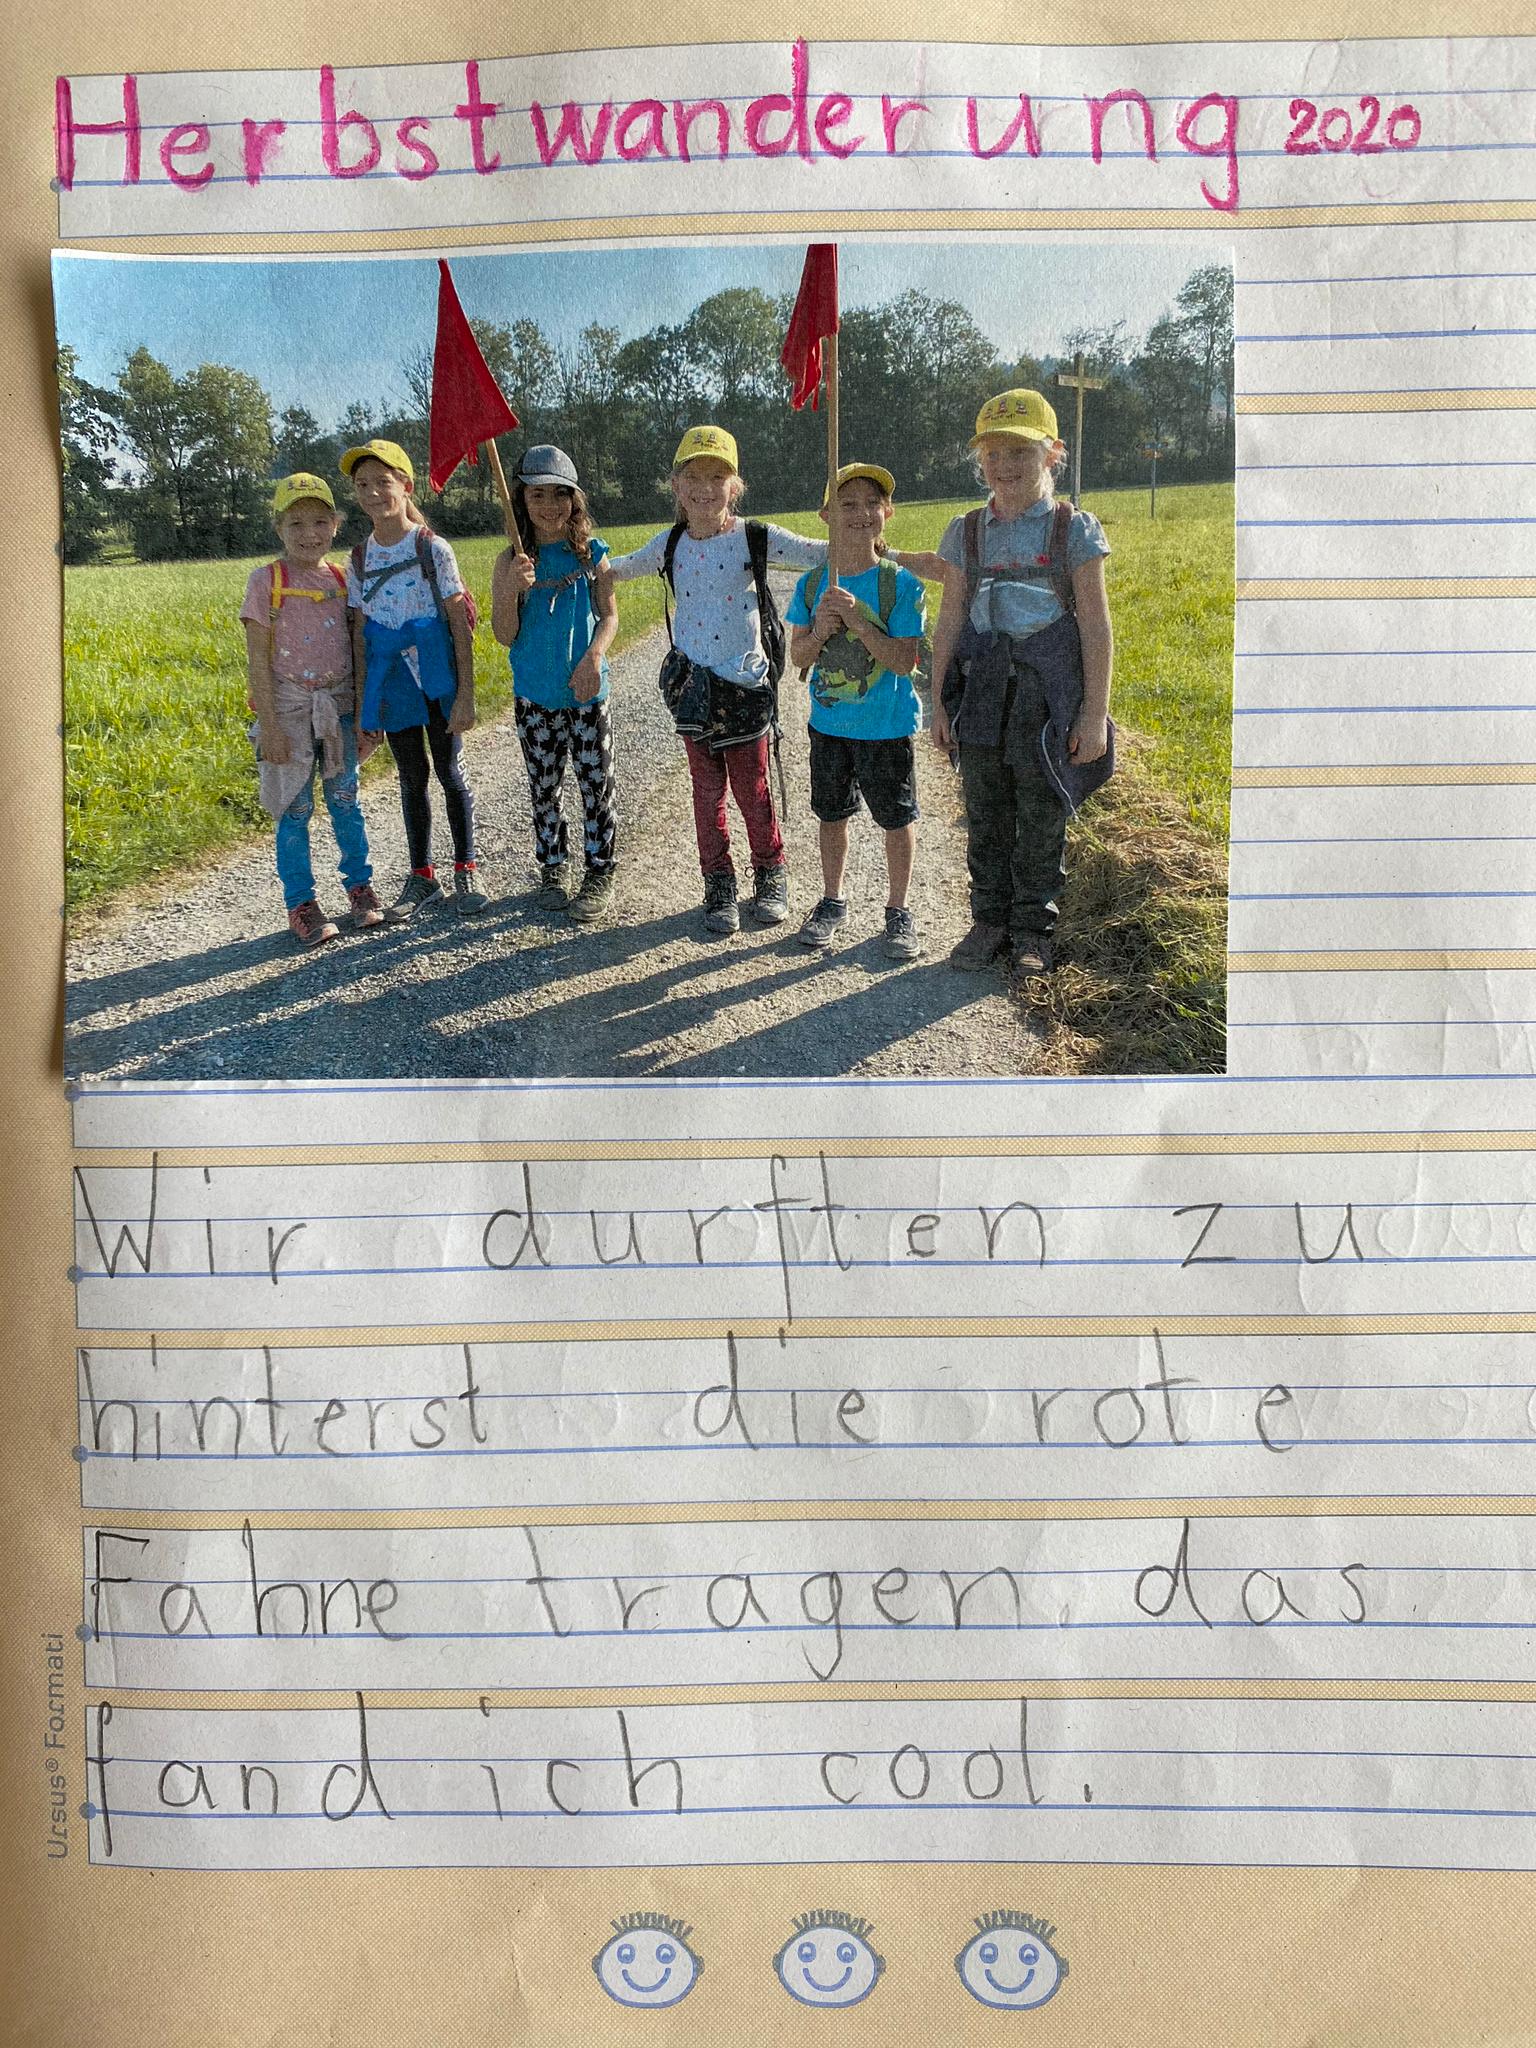 Herbstwanderung 2020
Wir durften zu
hinterst die rote
Fahne tragen. das
fand ich cool.
Ursus® Formati